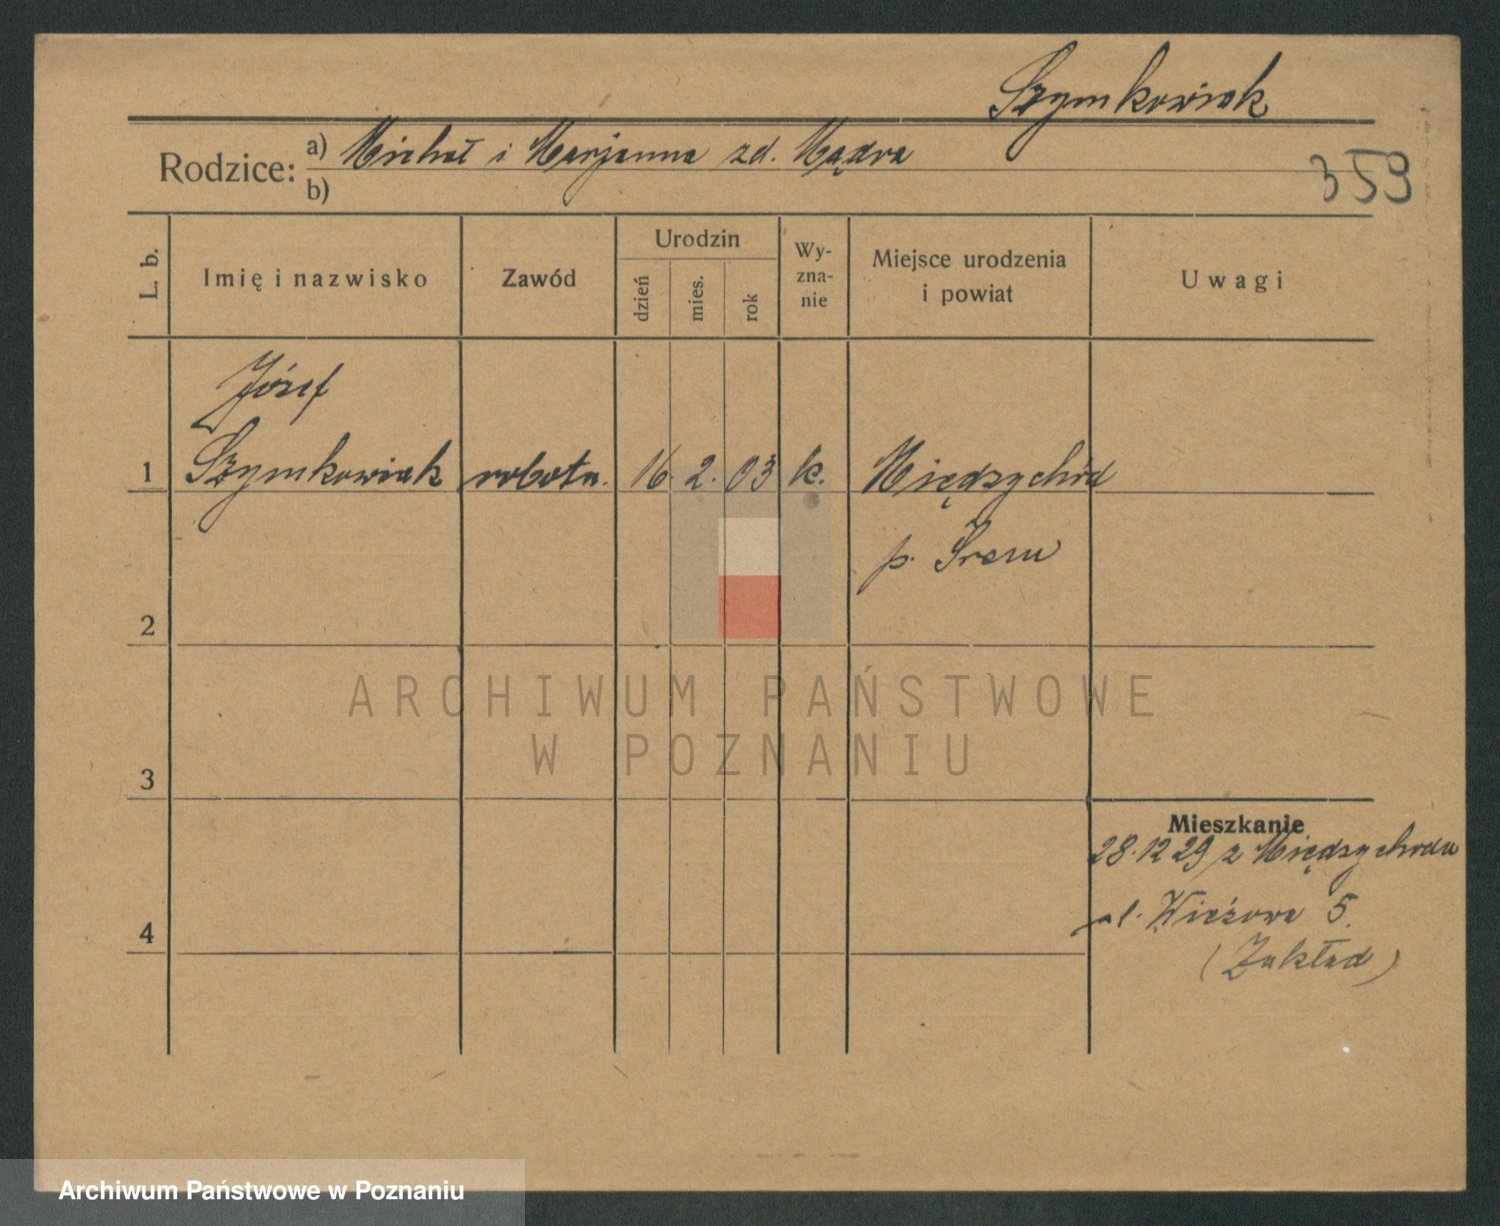 Szymkowiak
Rodzice: a) Michał i Marjanna zd. Mądra
b)
359
L. b.
Imię i nazwisko
Zawód
Urodzin
dzień
mies.
rok
Wy-
zna-
nie
Miejsce urodzenia
i powiat
Uwagi
Józef
1 Szymkowiak robotn. 16. 2. 03 k. Międzychód
p. Śrem
2
3
4
Mieszkanie
28.12 29 z Międzychodu
ul. Wieżowa 5.
(Zakład)
ARCHIWUM PAŃSTWOWE
W POZNANIU
Archiwum Państwowe w Poznaniu